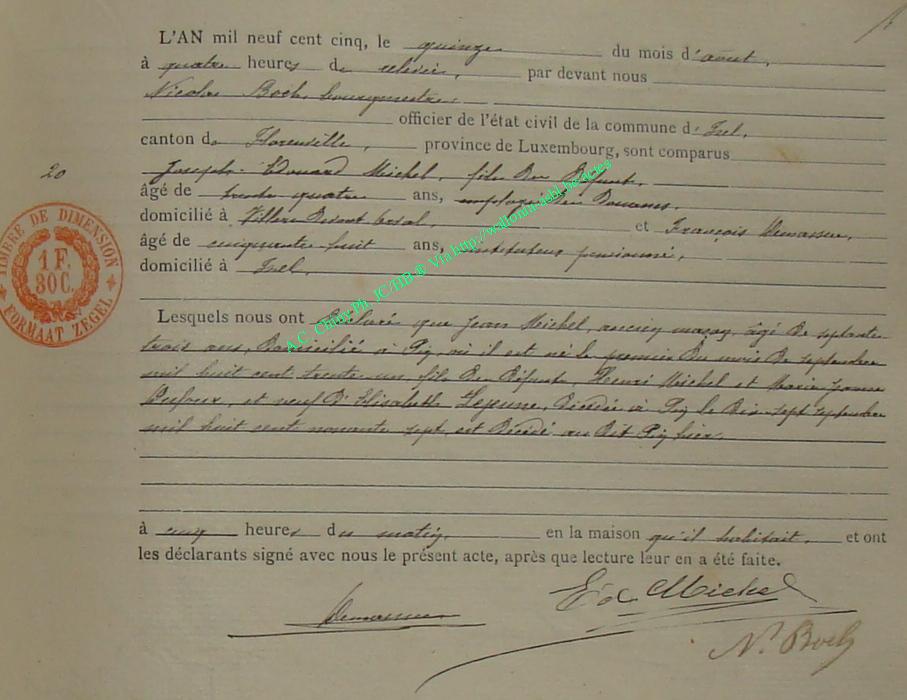 L'AN mil neuf cent cinq, le quinze du mois d'août,
à quatre heures de relevée, par devant nous
Nicolas Boch, bourgmestre,
officier de l'état civil de la commune d'Izel,
canton de Florenville, province de Luxembourg, sont comparus
20
Joseph-Edouard Michel, fils du défunt,
âgé de trente quatre ans, employé des Douanes,
domicilié à Villers Devant Orval et François Demasseur,
âgé de cinquante huit ans, instituteur pensionné,
domicilié à Izel,
TIMBRE DE DIMENSION
1 F.
30 C.
FORMAAT ZEGEL
A.C. Chiny Ph. JC/HB-R Via http://wallonia-asbl.be/actes
Lesquels nous ont déclaré que Jean Michel, ancien maçon, âgé de septante
trois ans, domicilié à Pin, où il est né le premier du mois de septembre
mil huit cent trente un, fils des défunts, Henri Michel et Marie Jeanne
et veuf d'Elisabeth Lejeune, décédée à Pin le dix-sept septembre
mil huit cent nonante sept, est décédé au dit Pin hier,
à cinq heures du matin, en la maison qu'il habitait, et ont
les déclarants signé avec nous le présent acte, après que lecture leur en a été faite.
Ed Michel
N. Boch